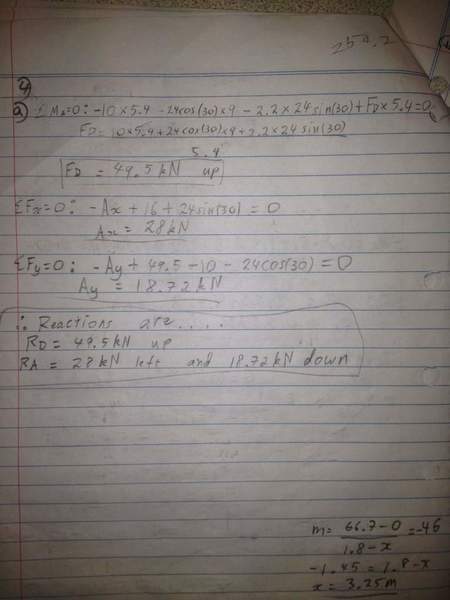 254.2
4
a) ΣMA=0: -10×5.4 -24cos(30)×9 - 2.2×24sin(30)+FD×5.4=0
FD= 10×5.4+24cos(30)×9+2.2×24 sin(30)
5.4
FD = 49.5kN up
ΣFx=0: -Ax + 16 + 24sin(30) = 0
Ax = 28kN
ΣFy=0: -Ay + 49.5 -10 - 24cos(30) = 0
Ay = 18.72kN
∴ Reactions are....
RD = 49.5kN up
RA = 28kN left and 18.72kN down
m = 66.7-0 = -46
1.8-x
-1.45 = 1.8-x
x = 3.25m